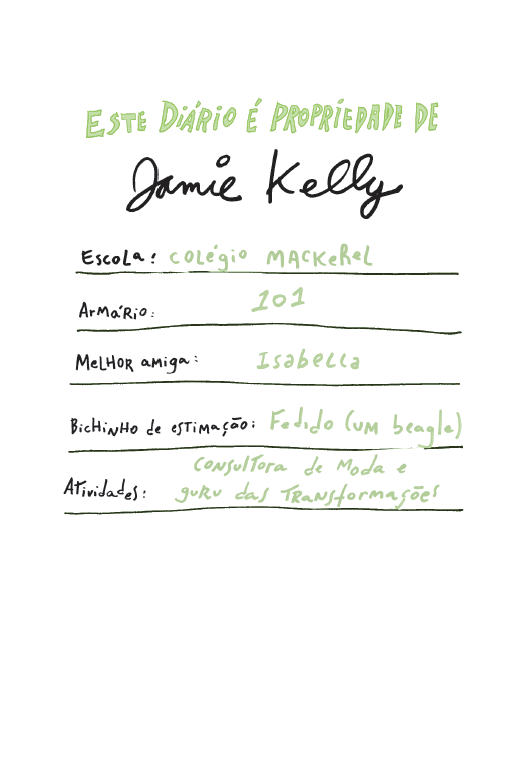 Este Diário é propriedade de
Jamie Kelly
Escola: Colégio Mackerel
Armário: 101
Melhor amiga: Isabella
Bichinho de estimação: Fedido (um beagle)
Atividades: Consultora de moda e
guru das transformações